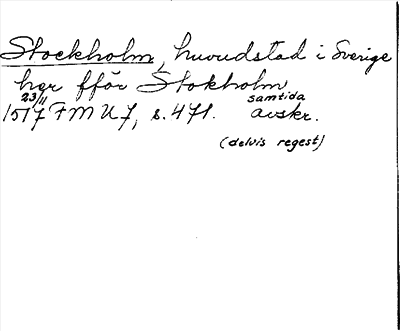 Stockholm, huvudstad i Sverige
her fför Stokholm
23/11 samtida
1517 FMU 7, s. 471. avskr.
(delvis regest)